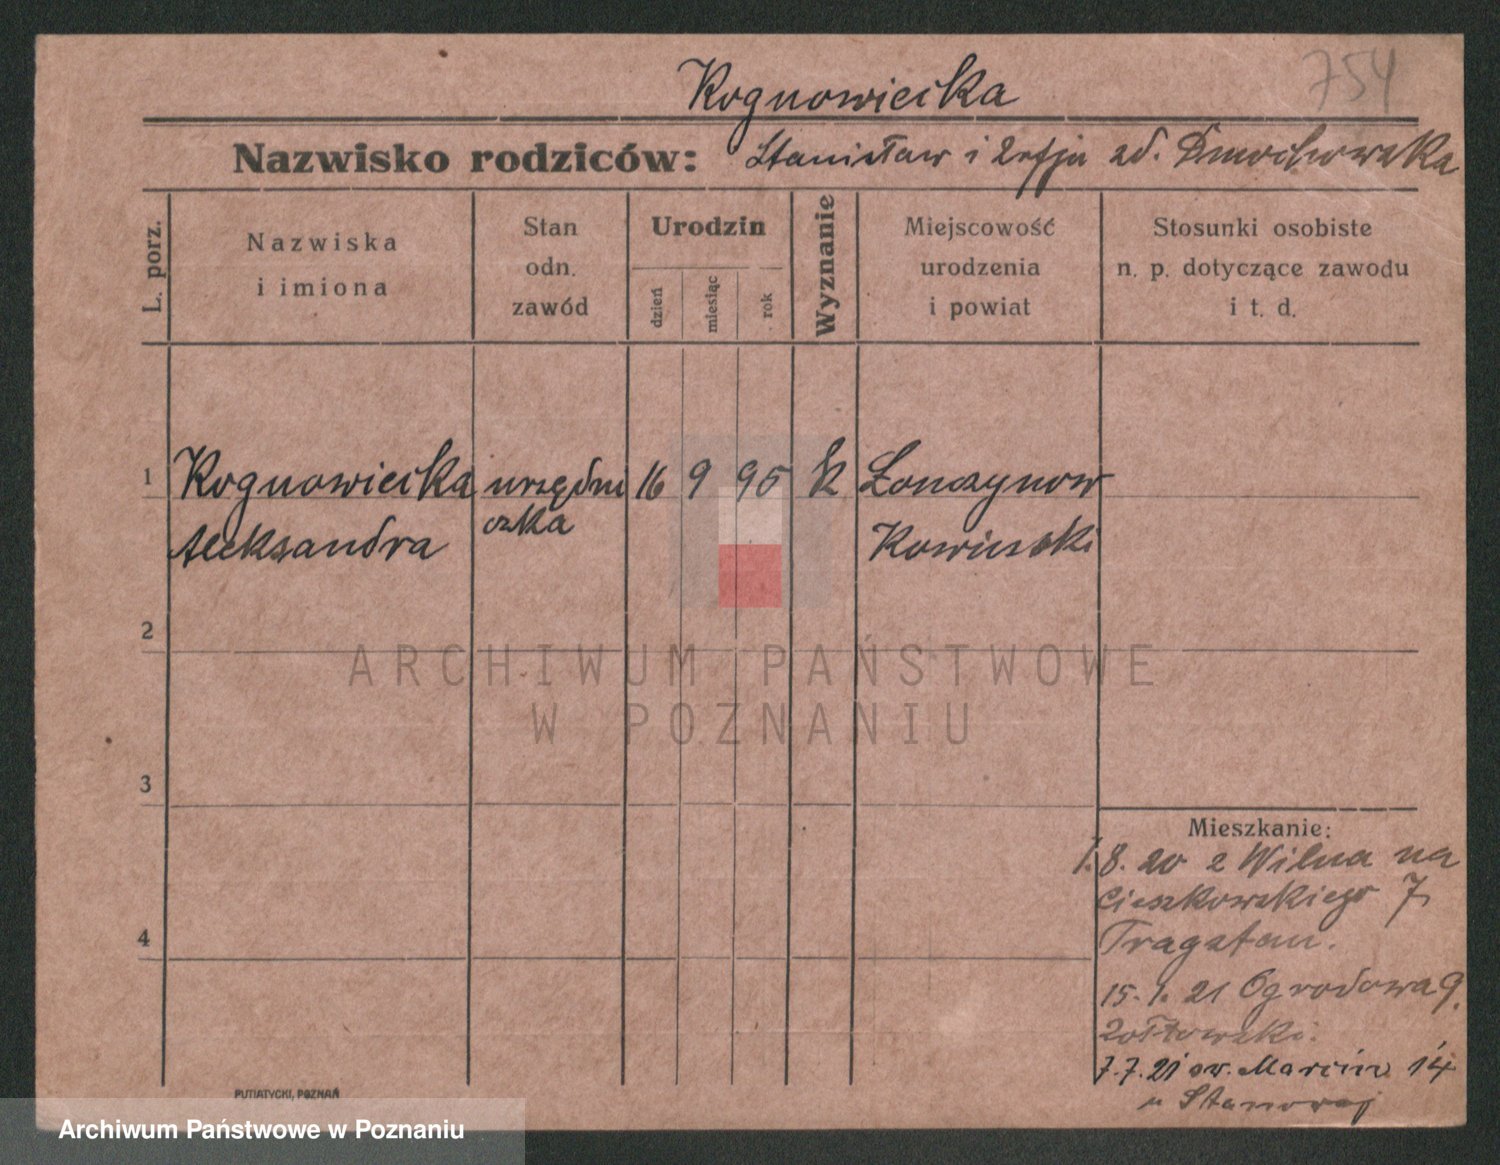 754
Rognowicka
Nazwisko rodziców: Stanisław i Zofja zd. Dmochowska
L. porz.
Nazwiska
i imiona
Stan
odn.
zawód
Urodzin
dzień
miesiąc
rok
Wyznanie
Miejscowość
urodzenia
i powiat
Stosunki osobiste
n. p. dotyczące zawodu
i t. d.
1 Rognowicka urzędni 16 9 95 k
Aleksandra czka
Kowieński
2
3
4
ARCHIWUM PAŃSTWOWE
W POZNANIU
Mieszkanie:
1.8.20 z Wilna na
Cieszkowskiego 7
15.1.21 Ogrodowa 9.
Żółtowski.
7.7.21 św. Marcin 14
u
PUTIATYCKI, POZNAŃ
Archiwum Państwowe w Poznaniu